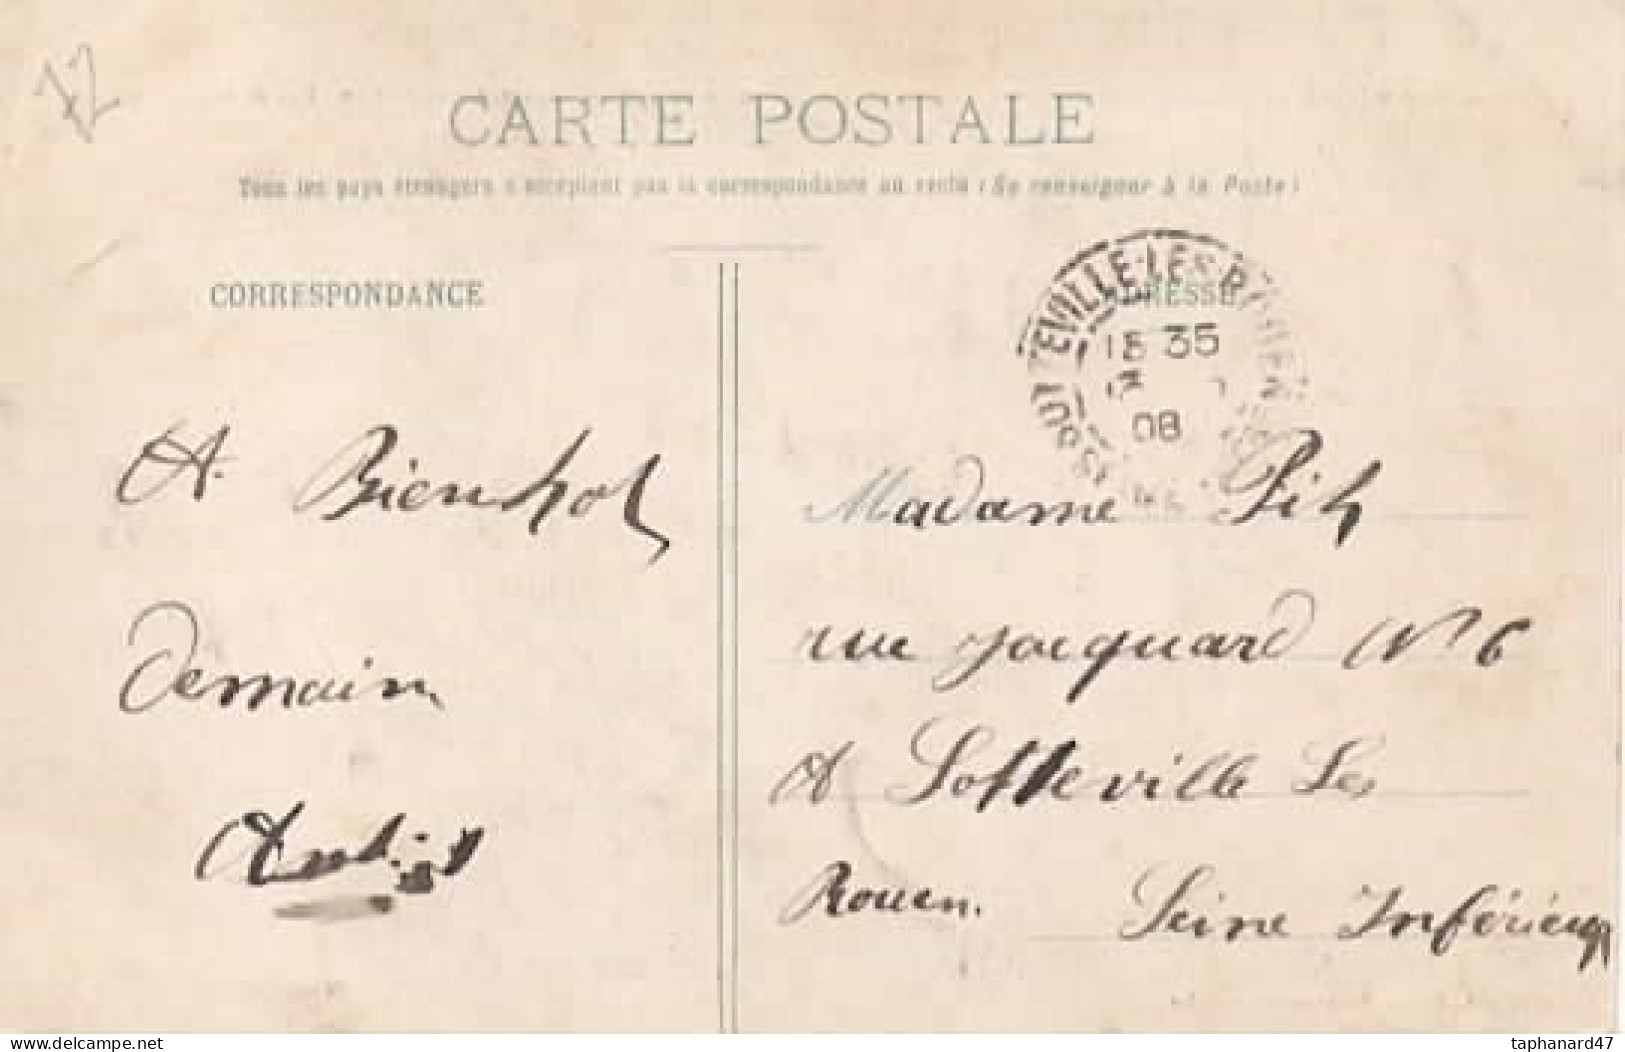 12
CARTE POSTALE
Tous les pays étrangers n'acceptent pas la correspondance au recto (Se renseigner à la Poste)
CORRESPONDANCE
ADRESSE
SOTTEVILLE-LES-ROUEN
18 35
08
A. Bienhot
Demain
Madame Pih
rue Jacquard N° 6
A Sotteville Les
Rouen. Seine Inférieur
www.delcampe.net
taphanard47